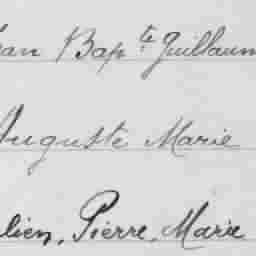 ean Bapte Guillaum
Auguste Marie
lien, Pierre, Marie